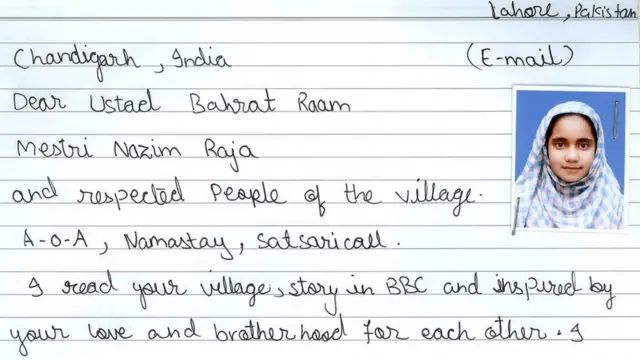 Lahore, Pakistan
Chandigarh, India (E-mail)
Dear Ustad Bahrat Raam
Mestri Nazim Raja
and respected People of the village.
A-O-A, Namastay, Satsaricall.
I read your village, story in BBC and inspired by
your love and brotherhood for each other. I